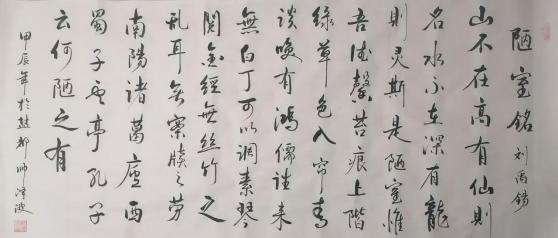 陋室銘 刘禹錫
山不在高有仙則
名水不在深有龍
則灵斯是陋室惟
吾德馨苔痕上階
綠草色入帘青
談咲有鴻儒往来
無白丁可以調素琴
閱金經無丝竹之
乱耳无案牘之劳
南陽諸葛廬西
蜀子云亭孔子
云何陋之有
甲辰年於盐都師泽波